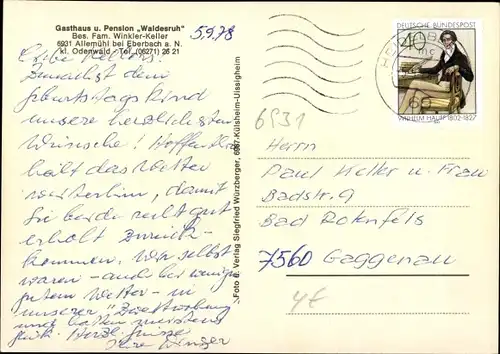 Gasthaus u. Pension „Waldesruh"
Bes. Fam. Winkler-Keller
6931 Allemühl bei Eberbach a. N.
kl. Odenwald - Tel. (06271) 26 21
5.9.78
Zunächst dem
Geburtstagskind
unsere herzlichsten
Wünsche! Hoffentlich
hält das Wetter
weiterhin, damit
Sie beide recht gut
erholt zurück-
kommen. Wir selbst
waren - auch bei wenig
gutem Wetter - in
unserer
und hatten meistens
Herzl. Grüsse
Ihre
Foto u. Verlag Siegfried Würzberger, 6987 Külsheim-Uissigheim
DEUTSCHE BUNDESPOST
40
WILHELM HAUFF 1802-1827
6931
Herrn
Paul Keller u. Frau
Badstr. 9
Bad Rotenfels
7560 Gaggenau
4€